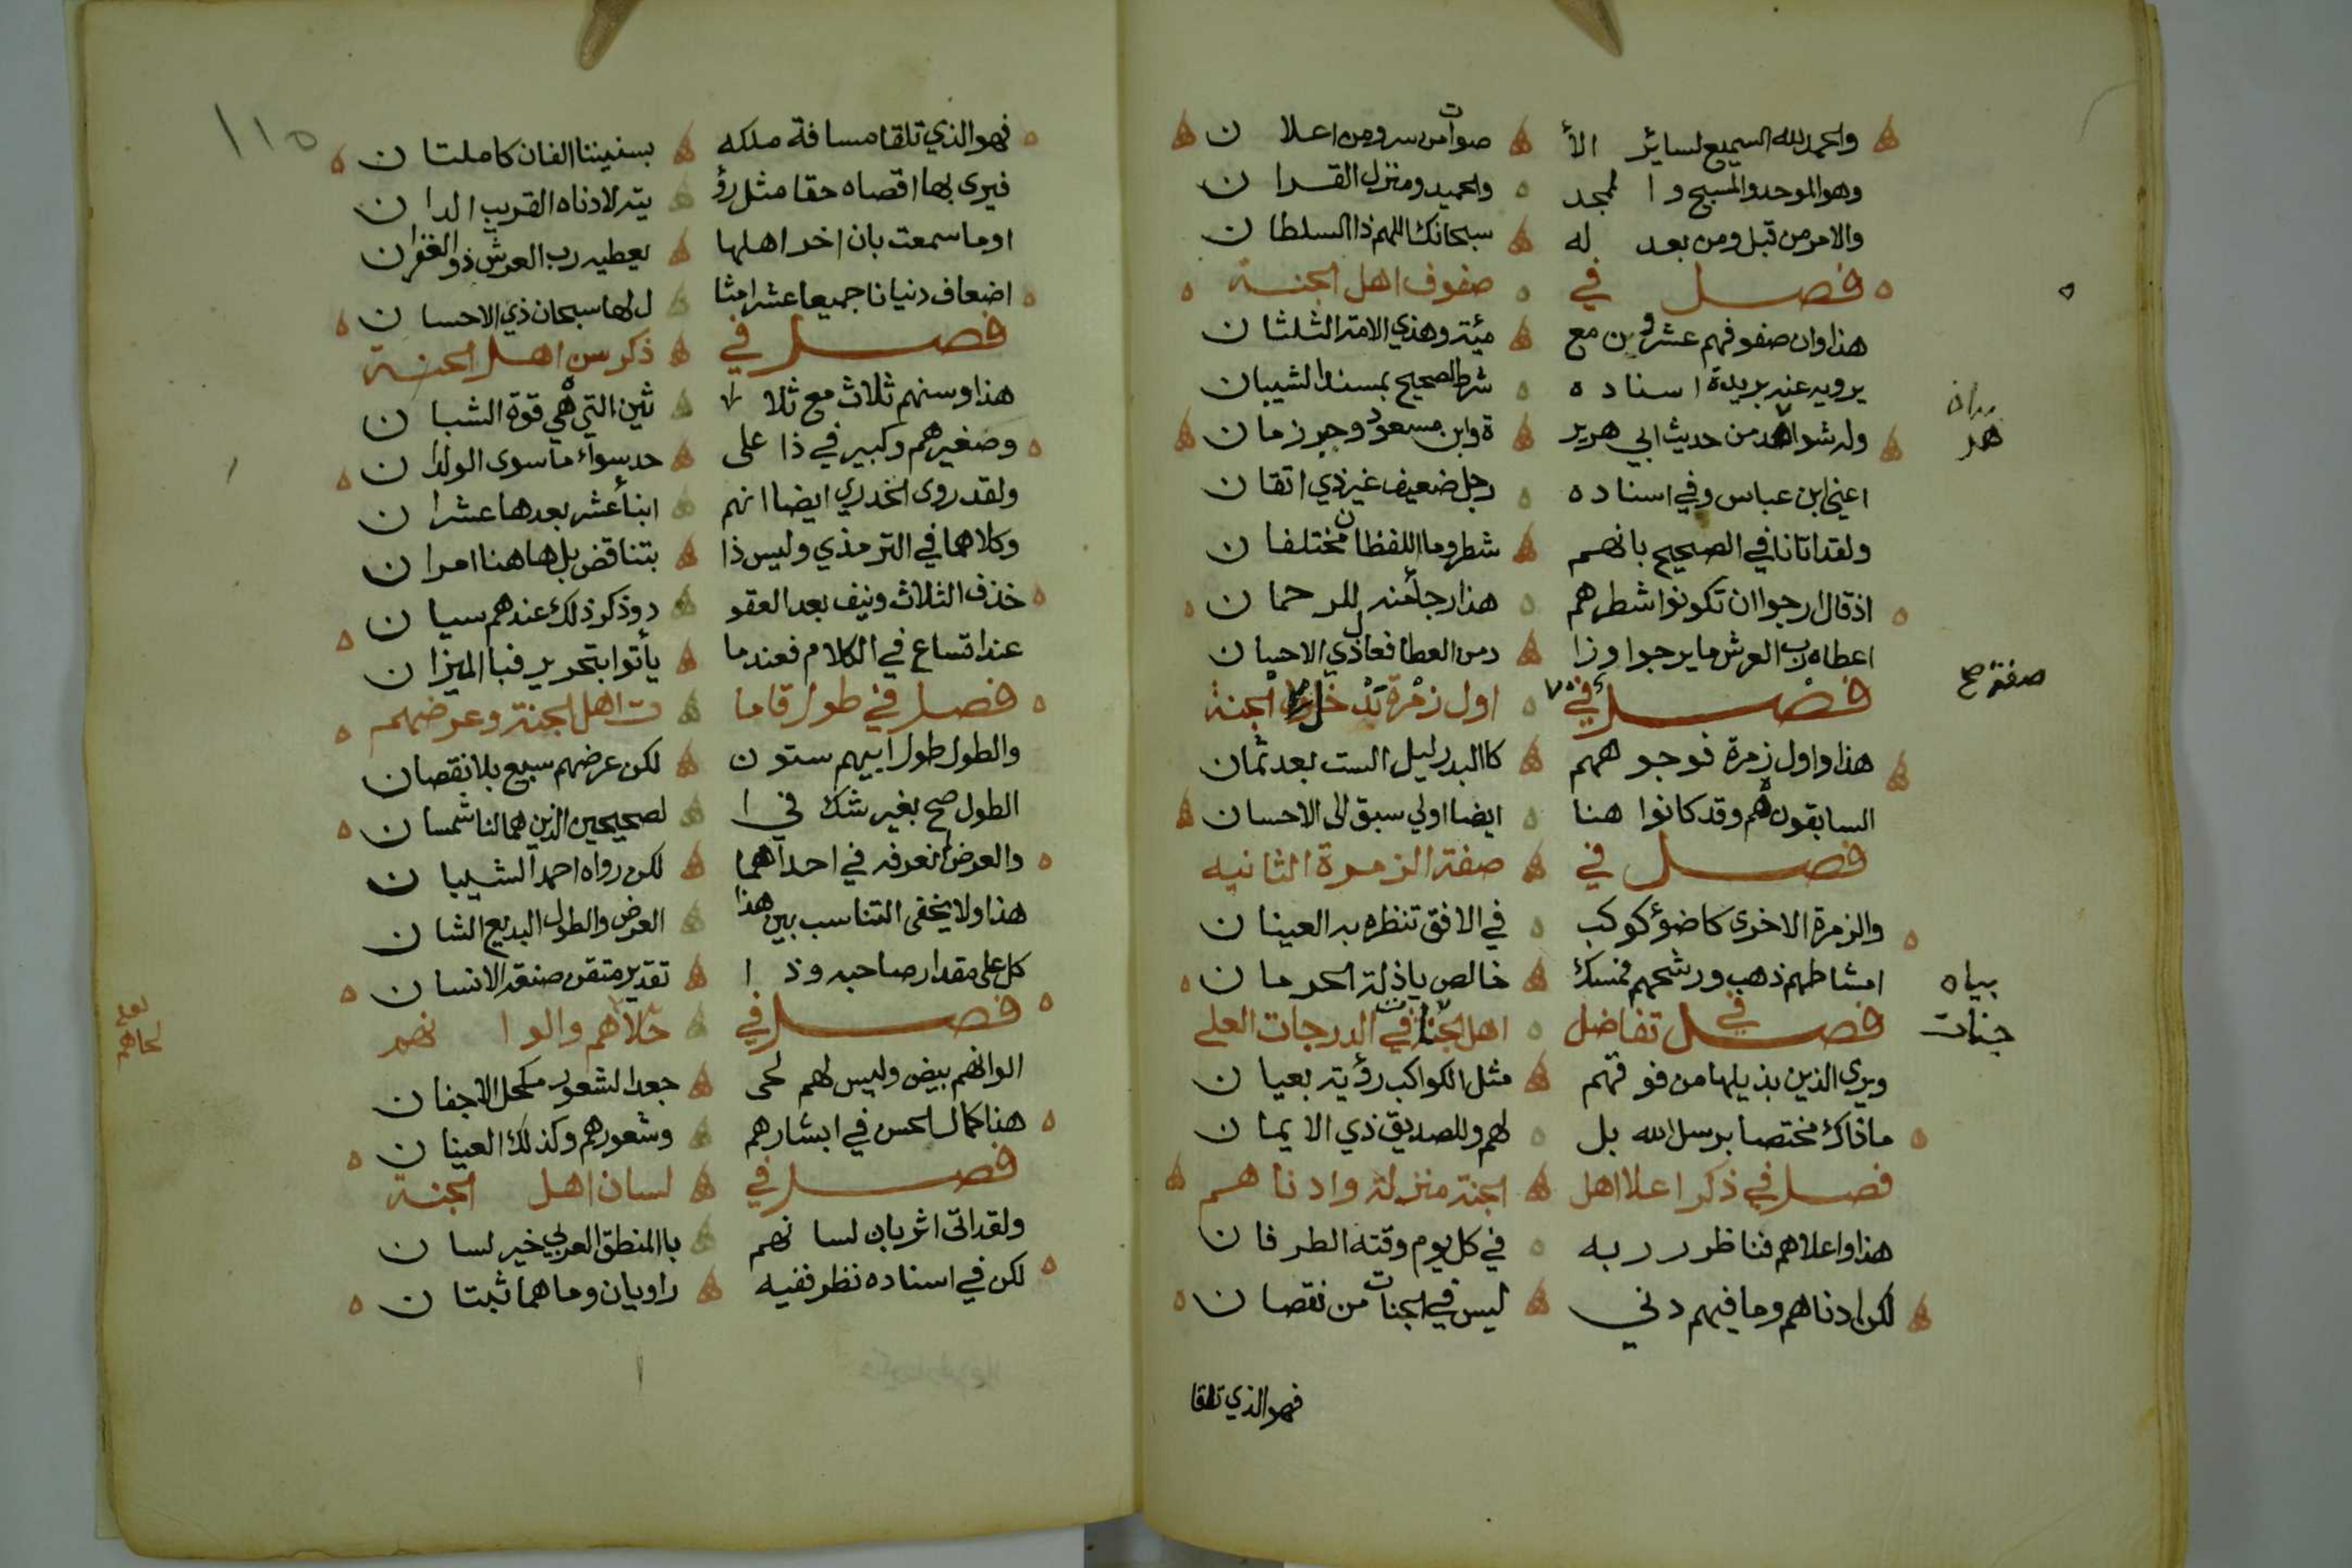 والحمد لله السميع لسائر الأ صوات من سر ومن اعلان
وهو الموحد والمسبح والممجد والحميد ومنزل القران
والامر من قبل ومن بعد له سبحانك اللهم ذا السلطان
فصل في صفوف اهل الجنة
هذا وان صفوفهم عشرون مع مئة وهذي الامة الثلثان
يرويه عنه بريدة اسناده شرط الصحيح بمسند الشيبان
وله شواهد من حديث ابي هرير ة وابن مسعود وحبر زمان
اعني ابن عباس وفي اسناده رجل ضعيف غير ذي اتقان
ولقد اتانا في الصحيح بانهم شطر وما اللفظان مختلفان
اذ قال ارجوا ان تكونوا شطرهم هذا رجا منه للرحمان
اعطاه رب العرش ما يرجوا وزا د من العطا فعال ذي الاحسان
فصل في اول زمرة تدخل الجنة
هذا واول زمرة فوجوههم كالبدر ليل الست بعد ثمان
السابقون هم وقد كانوا هنا ايضا اولي سبق الى الاحسان
فصل في صفة الزمرة الثانيه
والزمرة الاخرى كاضوٴ كوكب في الافق تنظره به العينان
امشاطهم ذهب ورشحهم فمسك خالص ياذلة الحرمان
فصل في تفاضل اهل الجنة في الدرجات العلى
ويرى الذين بذيلها من فوقهم مثل الكواكب رؤية بعيان
ماذاك مختصا برسل الله بل لهم وللصديق ذي الايمان
فصل في ذكر اعلا اهل الجنة منزلة وادناهم
هذا واعلاهم فناظر ربه في كل يوم وقته الطرفان
لكن ادناهم وما فيهم دني ليس في الجنات من نقصان
صفة صح
جنات
فهو الذي تلقا
١١٥
فهو الذي تلقا مسافة ملكه بسنيننا الفان كاملتان
فيرى بها اقصاه حقا مثل رؤ يته لادناه القريب الدان
اوما سمعت بان اخر اهلها يعطيه رب العرش ذو الغفران
اضعاف دنيانا جميعا عشر امثا ل لها سبحان ذي الاحسان
فصل في ذكر سن اهل الجنة
هذا وسنهم ثلاث مع ثلا ثين التي هي قوة الشبان
وصغيرهم وكبير في ذا على حد سواء ما سوى الولدان
ولقد روى الخدري ايضا انهم ابنا عشر بعدها عشران
وكلاهما في الترمذي وليس ذا بتناقض بل هاهنا امران
خذف الثلاث ونيف بعد العقو د وذكر ذلك عندهم سيان
عند اتساع في الكلام فعندما يأتوا بتحرير فبالميزان
فصل في طول قاما ت اهل الجنة وعرضهم
والطول طول ابيهم ستون لكن عرضهم سبع بلا نقصان
الطول صح بغير شك في ا لصحيحين الذين هما لنا شمسان
والعرض لم نعرفه في احداهما لكن رواه احمد الشيبان
هذا ولا يخفى التناسب بين هذا العرض والطول البديع الشان
كل على مقدار صاحبه وذا تقدير متقن صنعة الانسان
فصل في حلاهم والوانهم
الوانهم بيض وليس لهم لحى جعد الشعور مكحل الاجفان
هذا كمال الحسن في ابشارهم وشعورهم وكذلك العينان
فصل في لسان اهل الجنة
ولقد اتى اثر بان لسانهم باالمنطق العربي خير لسان
لكن في اسناده نظر ففيه راويان وما هما ثبتان